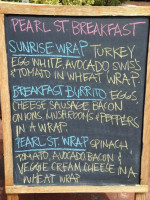 PEARL ST. BREAKFAST
SUNRISE WRAP TURKEY
EGG WHITE AVOCADO, SWISS
& TOMATO IN WHEAT WRAP.
BREAKFAST BURRITO EGGS,
CHEESE SAUSAGE BACON
ONIONS, MUSHROOMS & PEPPERS
IN A WRAP.
PEARL ST. WRAP SPINACH,
TOMATO, AVOCADO, BACON &
VEGGIE CREAM CHEESE IN A
WHEAT WRAP